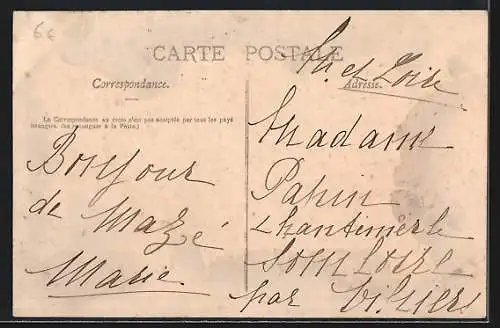 6€
CARTE POSTALE
Correspondance.
La Correspondance au recto n'est pas acceptée par tous les pays
étrangers. (Se renseigner à la Poste.)
Bonjour
de Mazé
Marie
M. et Loire
Adresse.
Madame
Papin
Chantimerle
par